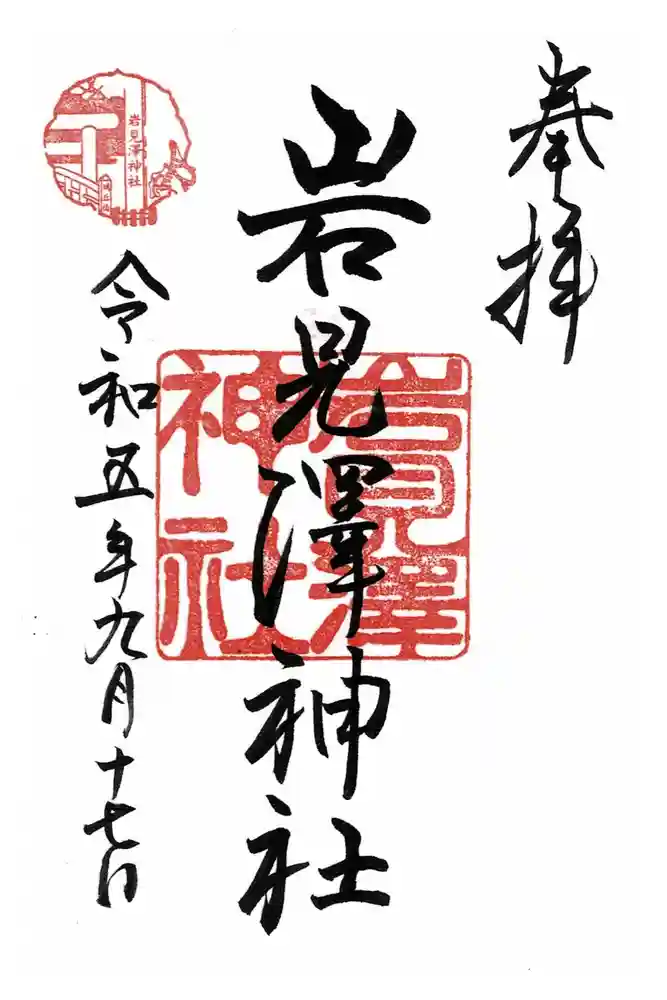 奉拝
岩見澤神社
岩見澤
神社
令和五年九月十七日
岩見澤神社